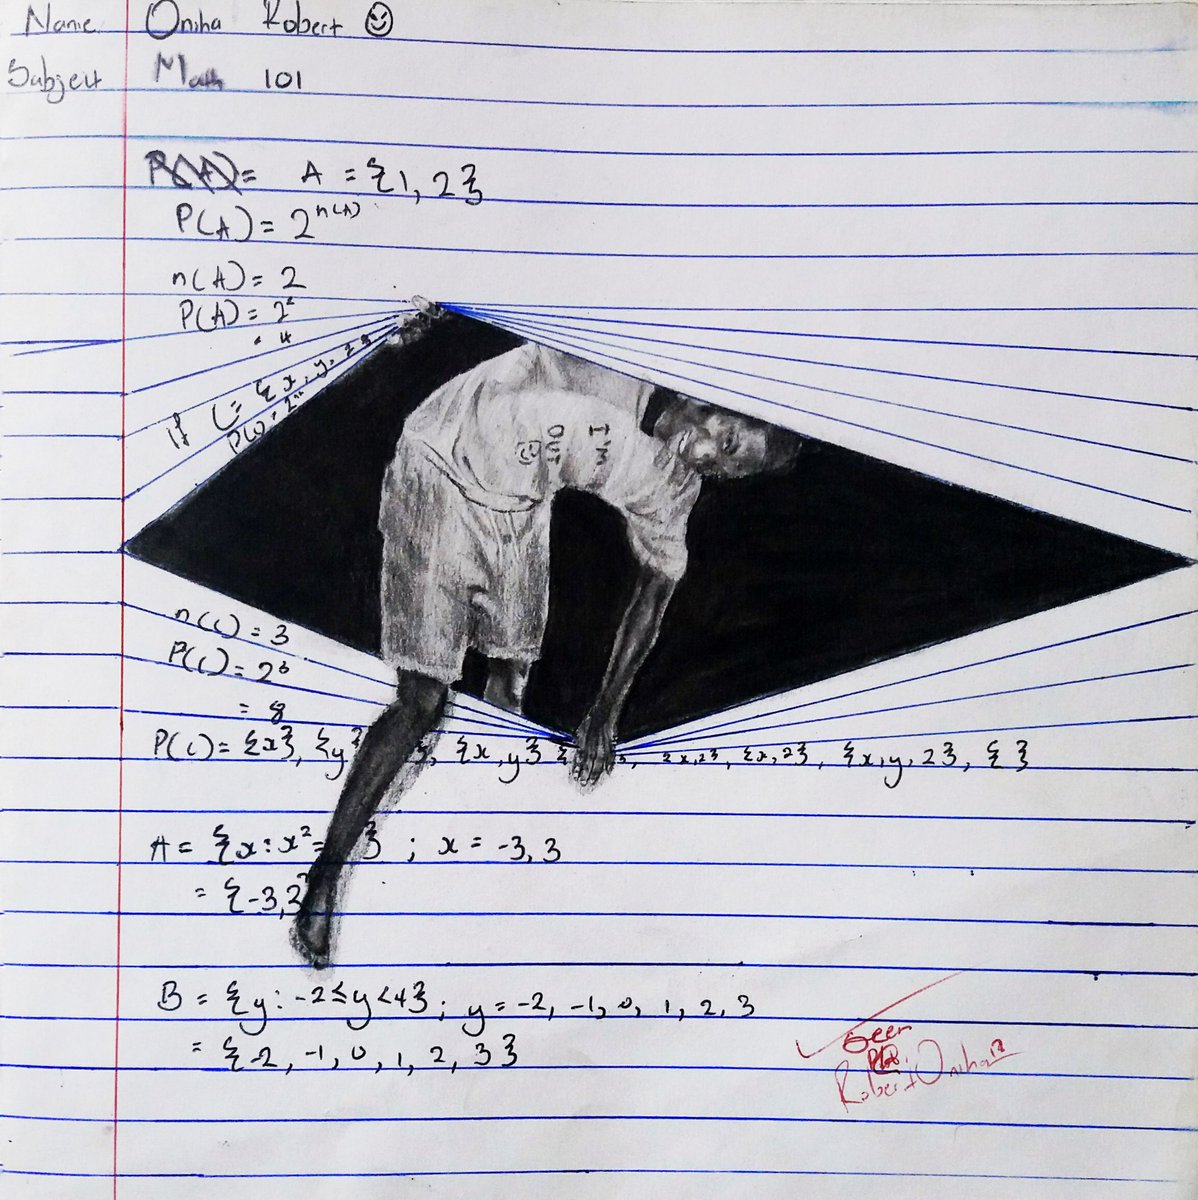 Name Oniha Robert
Subject Math 101
P(A)= A = {1, 2}
P(A) = 2^n(A)
n(A) = 2
P(A) = 2²
= 4
If C = {x, y, 2}
P(C) = 2
I'M
OUT
n(C) = 3
P(C) = 2³
= 8
P(C) = {x}, {y }, {x, y} {x, 2}, {x, y, 2}, { }
A = {x : x² = } ; x = -3, 3
= {-3, 3
B = {y : -2 ≤ y < 4} ; y = -2, -1, 0, 1, 2, 3
= {-2, -1, 0, 1, 2, 3}
Seen
Robert Oniha